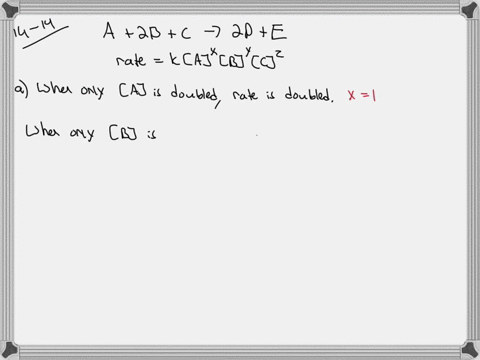 14-14
A + 2B + C → 2D + E
rate = k[A]^x [B]^y [C]^z
a) When only [A] is doubled, rate is doubled. x = 1
When only [B] is